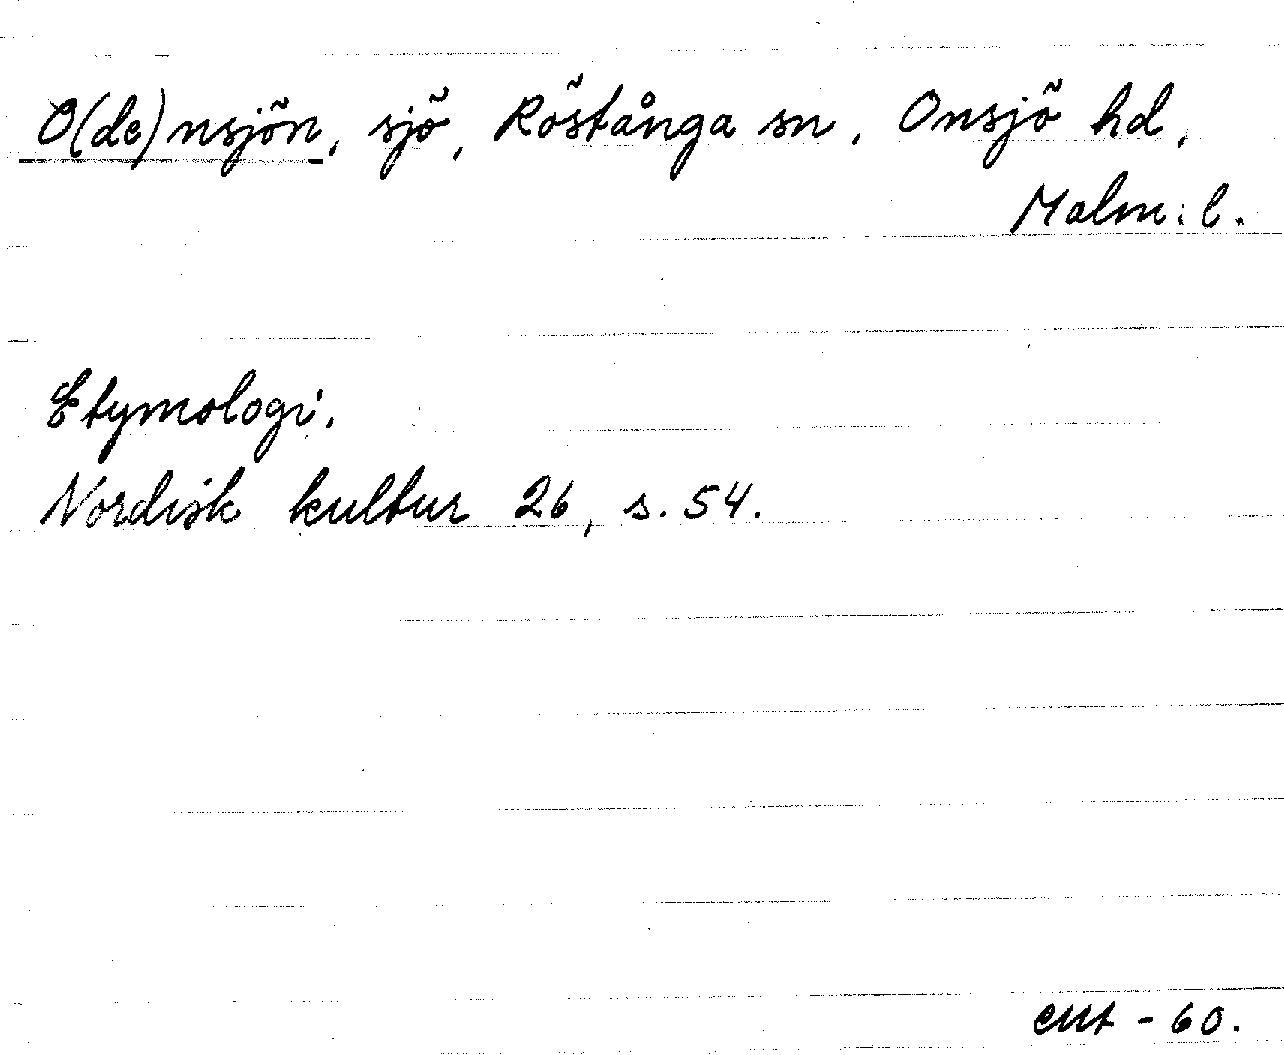 O(de)nsjön, sjö, Röstånga sn, Onsjö hd,
Malm. l.
Etymologi.
Nordisk kultur 26, s. 54.
- 60.